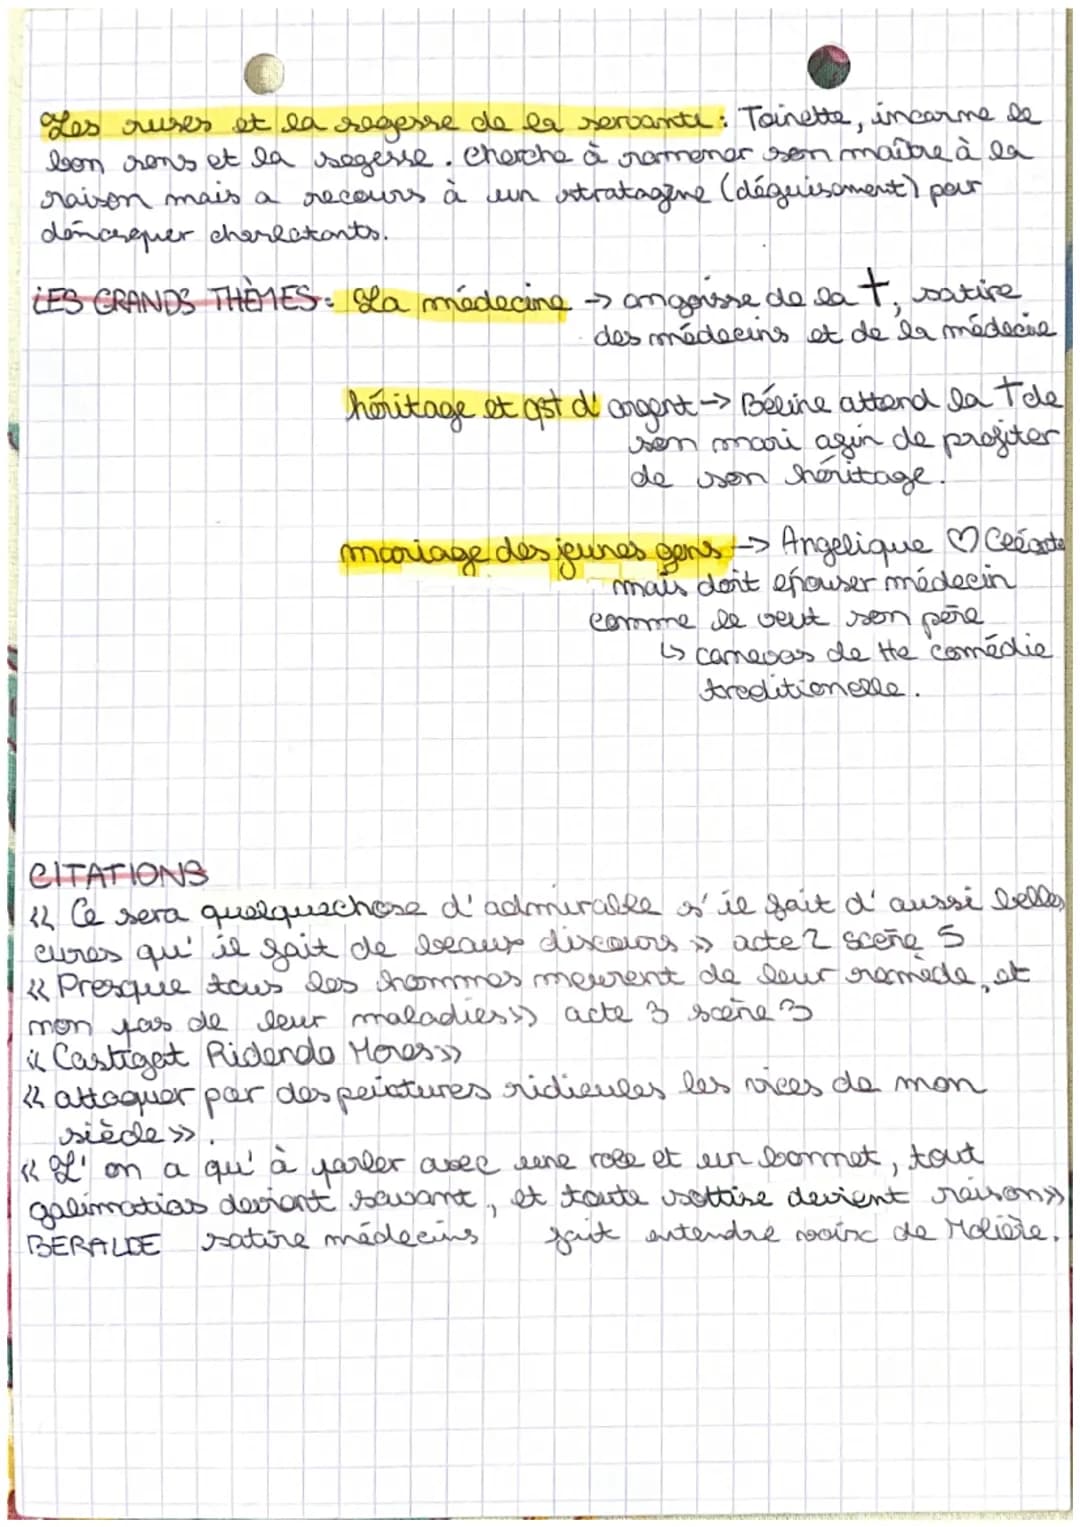 Les ruses et la sagesse de la servante : Toinette, incarne le
bon sens et la sagesse. Cherche à ramener son maître à la
raison mais a recours à un stratagème (déguisement) pour
démasquer charlatants.
LES GRANDS THÈMES : La médecine → angoisse de la †, satire
des médecins et de la médecie
héritage et qst d'argent → Béline attend la † de
son mari afin de profiter
de son héritage.
mariage des jeunes gens → Angelique ♡ Cléante
mais doit épouser médecin
comme le veut son père
↳ canevas de tte comédie
traditionelle.
CITATIONS
« Ce sera quelquechose d'admirable s'il fait d'aussi belles
cures qu'il fait de beaux discours » acte 2 scène 5
« Presque tous les hommes meurent de leur remède, et
non pas de leur maladies » acte 3 scène 3
« Castigat Ridendo Mores »
« attaquer par des peintures ridicules les vices de mon
siècle ».
« L'on a qu'à parler avec une robe et un bonnet, tout
galimatias devient savant, et toute sottise devient raison »
BERALDE satire médecins fait entendre voix de Molière.